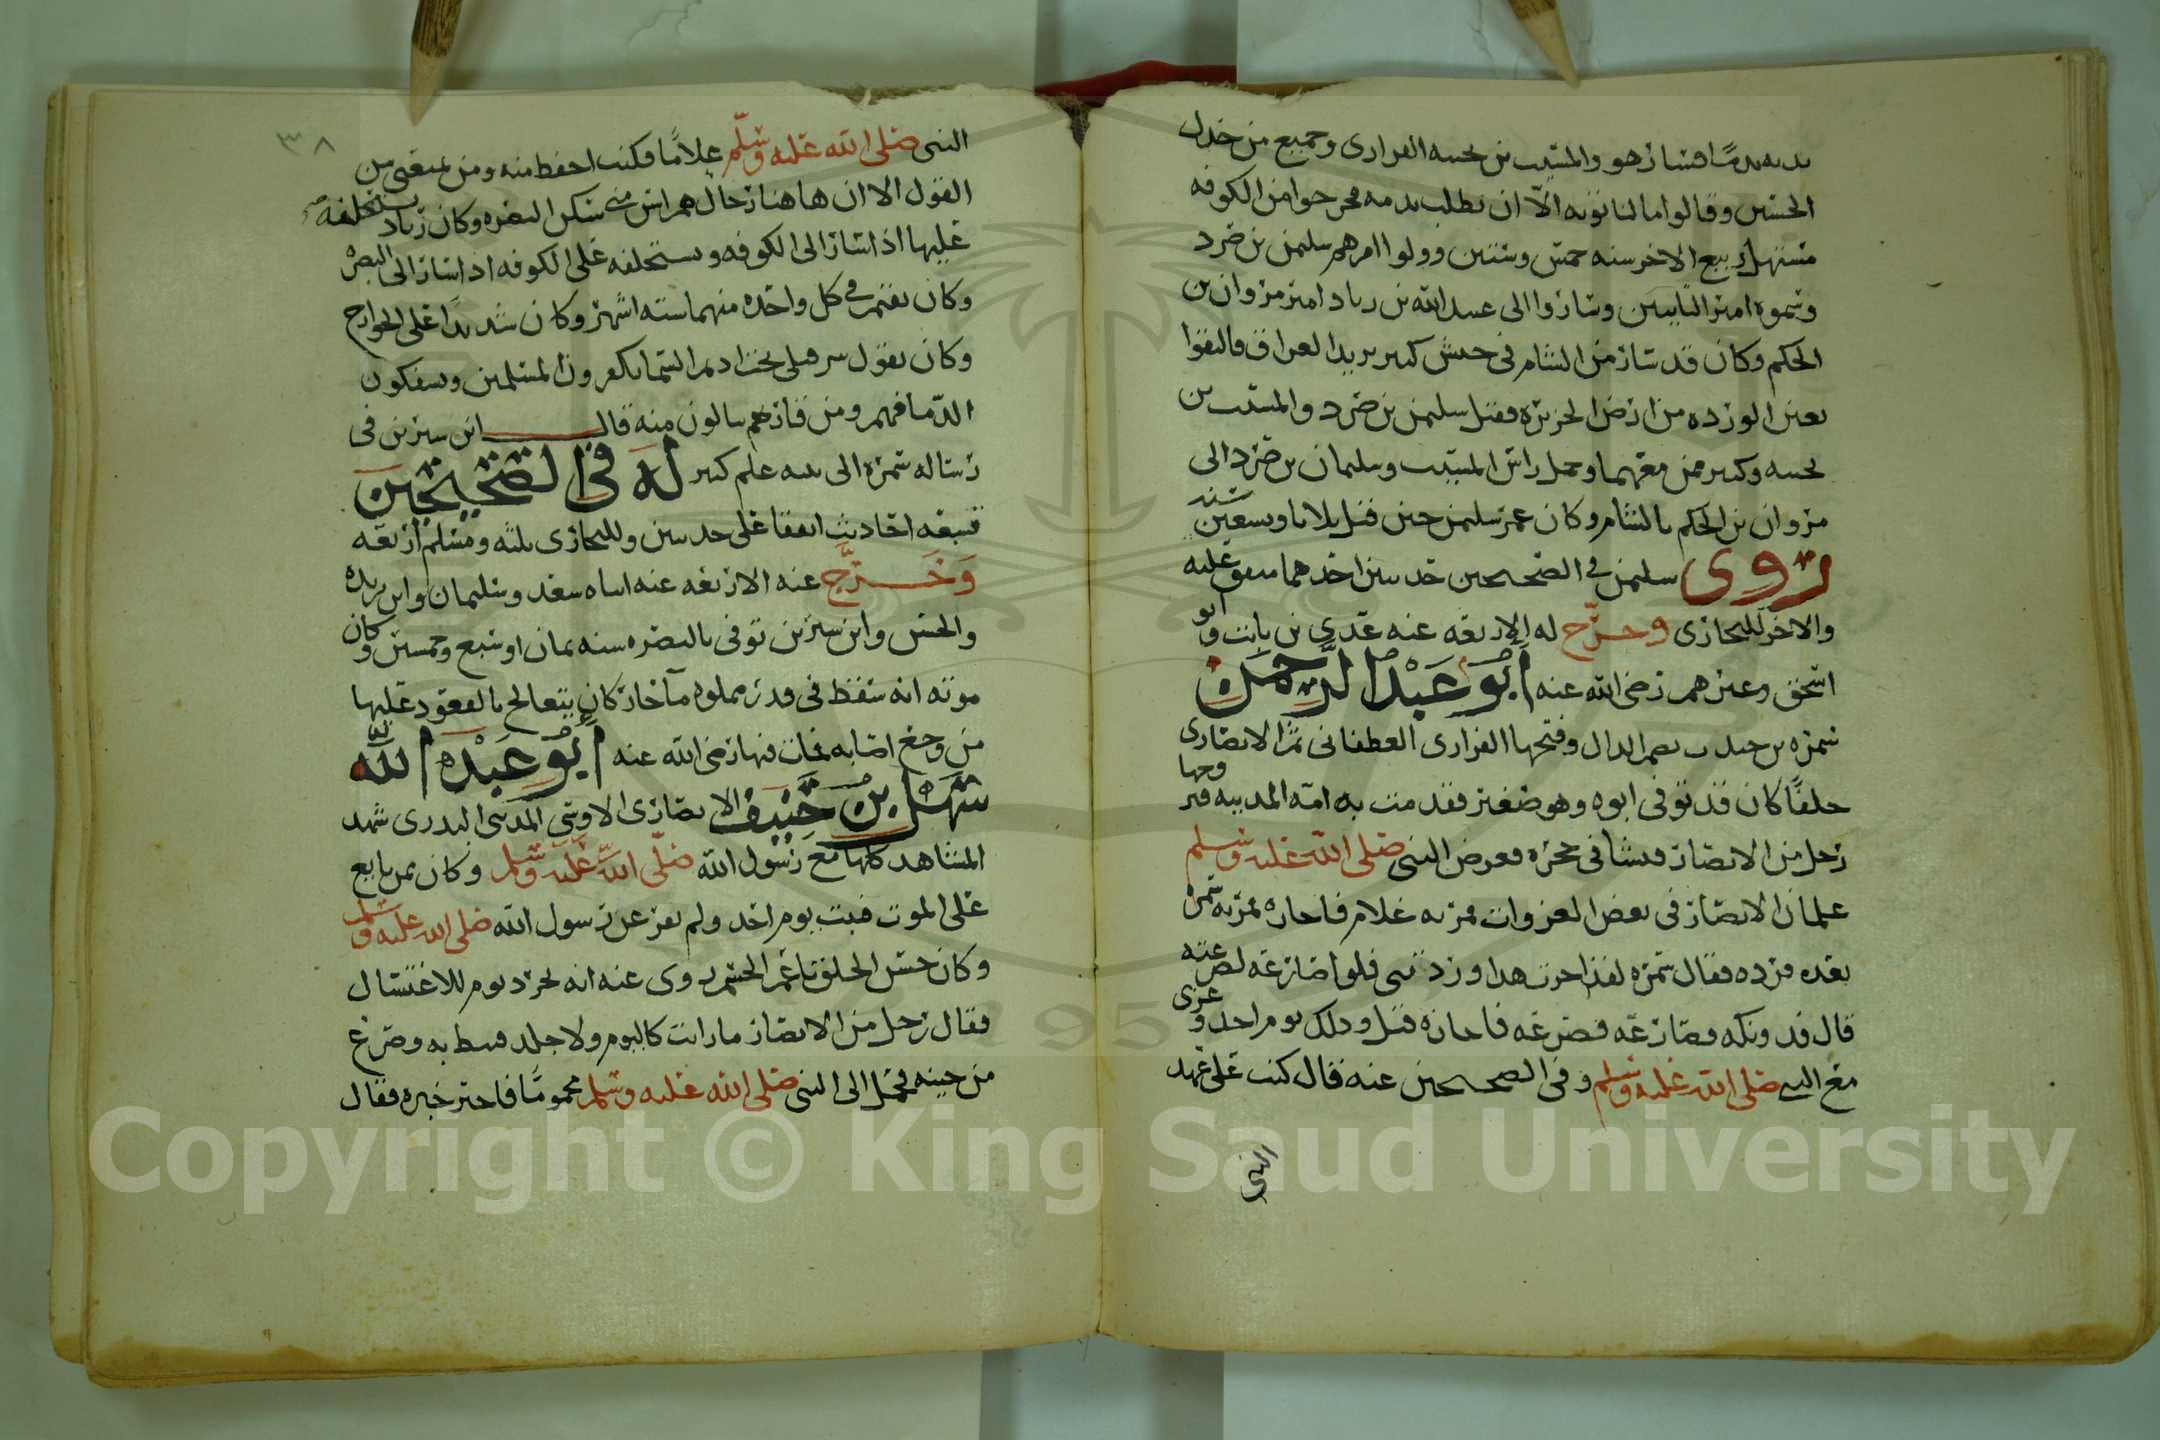 ندم ندمًا فسار هو والمسيب بن نجبه الفزارى وجميع من خذل
الحسين وقالوا ما لنا توبه الّا ان نطلب بدمه فخرجوا من الكوفه
مستهل ربيع الاخر سنه خمس وستين وولوا امرهم سليمن بن صرد
وسموه امير التايبين وساروا الى عبيد الله بن زياد امير مروان بن
الحكم وكان قد سار من الشام فى جيش كبير يريد العراق فالتقوا
بعين الورده من ارض الجزيره فقتل سليمن بن صرد والمسيب بن
نجبه وكثير ممن معهما وحمل راس المسيب وسليمان بن صرد الى
مروان بن الحكم بالشام وكان عمر سليمن حين قتل ثلاثا وتسعين سنه
روى سليمن فى الصحيحين حديثين احدهما متفق عليه
والاخر للبخارى وخرّج له الاربعه عنه عدى بن ثابت وابو
اسحق وغيرهم رضى الله عنه ابو عبد الرحمن
سمره بن جندب بضم الدال وفتحها الفزارى الغطفانى ثم الانصارى
حلفًا كان قد توفى ابوه وهو صغير فقدمت به امه المدينه فتزوجها
رجل من الانصار فنشا فى حجره فعرض النبى صلى الله عليه وسلم
غلمان الانصار فى بعض الغزوات فمر به غلام فاجازه فمر به سمره
بعده فرده فقال سمره لقد اجزت هذا ورددتنى فلو صارعته لصرعته
قال فدونكه فصارعه فصرعه فاجازه قيل وذلك يوم احد وغزى
مع النبى صلى الله عليه وسلم وفى الصحيحين عنه فقال كنت على عهد
النبى
٣٨
النبى صلى الله عليه وسلّم غلامًا فكنت احفظ منه ومن يمنعنى من
القول الا ان هاهنا رجال هم اسن منى سكن البصره وكان زياد يستخلفه
عليها اذا سار الى الكوفه ويستخلفه على الكوفه اذا سار الى البصره
وكان يقيم فى كل واحده منهما سته اشهر وكان شديدًا على الخوارج
وكان يقول شر قتلى تحت اديم السما يكفرون المسلمين ويسفكون
الدما فهم ومن قاربهم ينالون منه قال ابن سيرين فى
رساله سمره الى بنيه علم كبير له فى الصحيحين
سبعه احاديث اتفقا على حديثين وللبخارى ثلثه ومسلم اربعه
وَخَرَّج عنه الاربعه عنه ابناه سعد وسليمان وابن بريده
والحسن وابن سيرين توفى بالبصره سنه ثمان او سبع وخمسين وكان
موته انه سقط فى قدر مملوه مآ حار كان يتعالج بالقعود عليها
من وجع اصابه فمات فيها رضى الله عنه ابو عبد الله
سهل بن حنيف الانصارى الاوسى المدنى البدرى شهد
المشاهد كلها مع رسول الله صلّى الله عليه وسلم وكان ممن بايع
على الموت فثبت يوم احد ولم يفر عن رسول الله صلى الله عليه وسلم
وكان حسن الخلق ناعم الجسم روى عنه انه تجرد يوم للاغتسال
فقال رجل من الانصار ما رايت كاليوم ولا جلد فسط به وصرع
من حينه فحمل الى النبى صلى الله عليه وسلم محمومًا فاخبر خبره فقال
Copyright © King Saud University